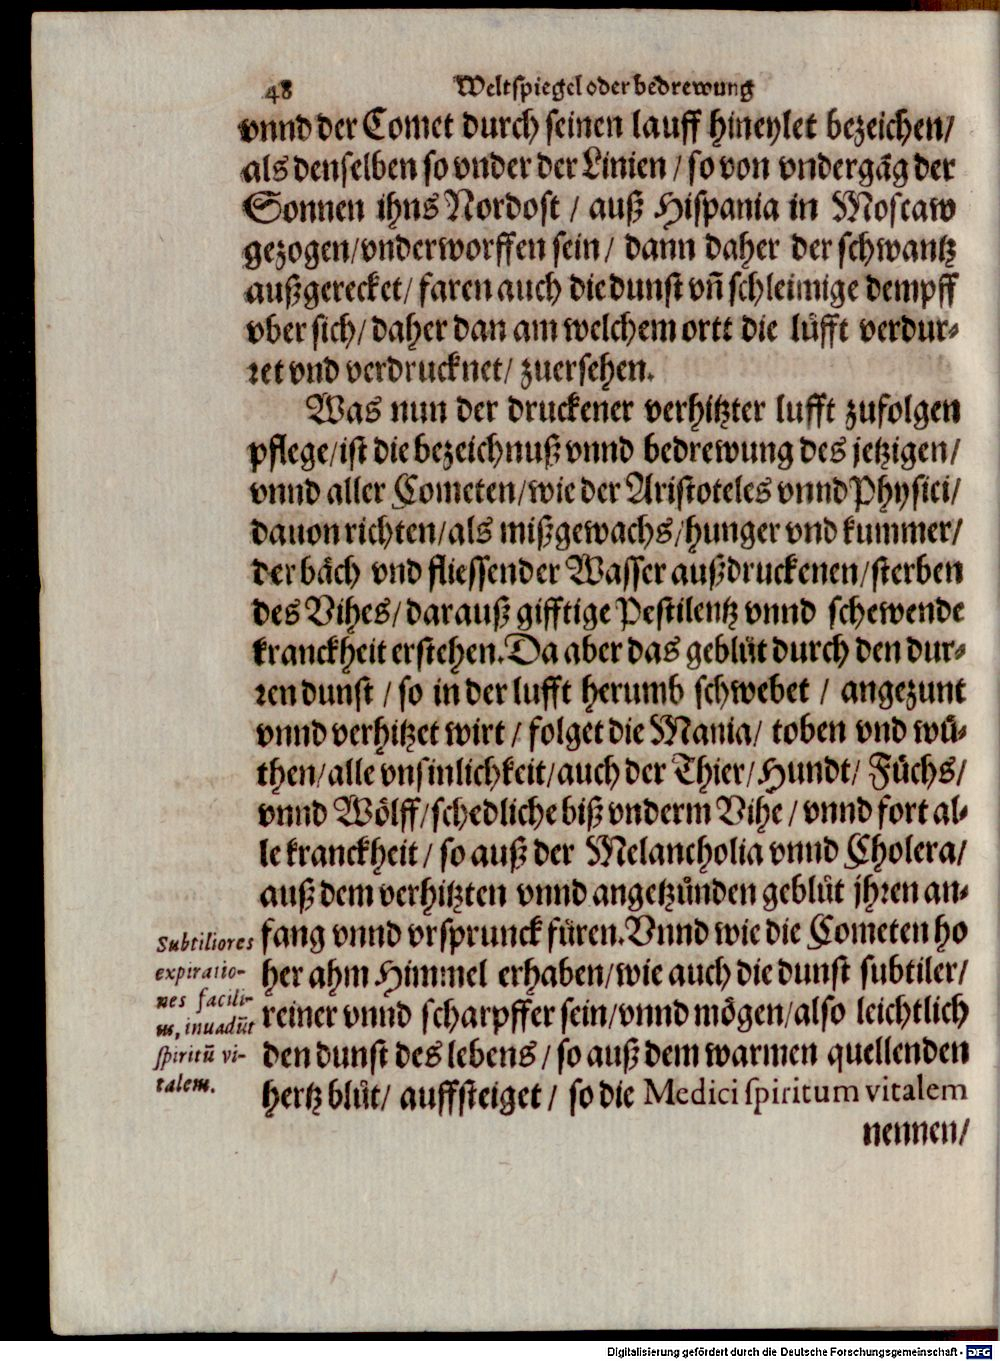 48 Weltspiegel oder bedrewung
vnnd der Comet durch seinen lauff hineylet bezeichen/
als denselben so vnder der Linien / so von vndergāg der
Sonnen ihns Nordost / auß Hispania in Moscaw
gezogen/vnderworffen sein/ dann daher der schwantz
außgerecket/ faren auch die dunst vñ schleimige dempff
vber sich/ daher dan am welchem ortt die lüfft verdur-
ret vnd verdrucknet/ zuersehen.
Was nun der druckener verhitzter lufft zufolgen
pflege/ist die bezeichnuß vnnd bedrewung des jetzigen/
vnnd aller Cometen/wie der Aristoteles vnnd Physici/
dauon richten/als mißgewachs/hunger vnd kummer/
der bäch vnd fliessender Wasser außdruckenen/sterben
des Vihes/ darauß gifftige Pestilentz vnnd schewende
kranckheit erstehen. Da aber das geblüt durch den dur-
ren dunst / so in der lufft herumb schwebet / angezunt
vnnd verhitzet wirt / folget die Mania/ toben vnd wü-
then/alle vnsinlichkeit/auch der Thier/Hundt/ Füchs/
vnnd Wölff/schedliche biß vnderm Vihe / vnnd fort al-
le kranckheit / so auß der Melancholia vnnd Cholera/
auß dem verhitzten vnnd angetzünden geblüt jhren an-
fang vnnd vrsprunck füren. Vnnd wie die Cometen ho
her ahm Himmel erhaben/wie auch die dunst subtiler/
reiner vnnd scharpffer sein/vnnd mögen/also leichtlich
den dunst des lebens / so auß dem warmen quellenden
hertz blüt/ auffsteiget / so die Medici spiritum vitalem
nennen/
Subtiliores
expiratio-
nes facili-
us, inuadūt
spiritū vi-
talem.
Digitalisierung gefördert durch die Deutsche Forschungsgemeinschaft - DFG